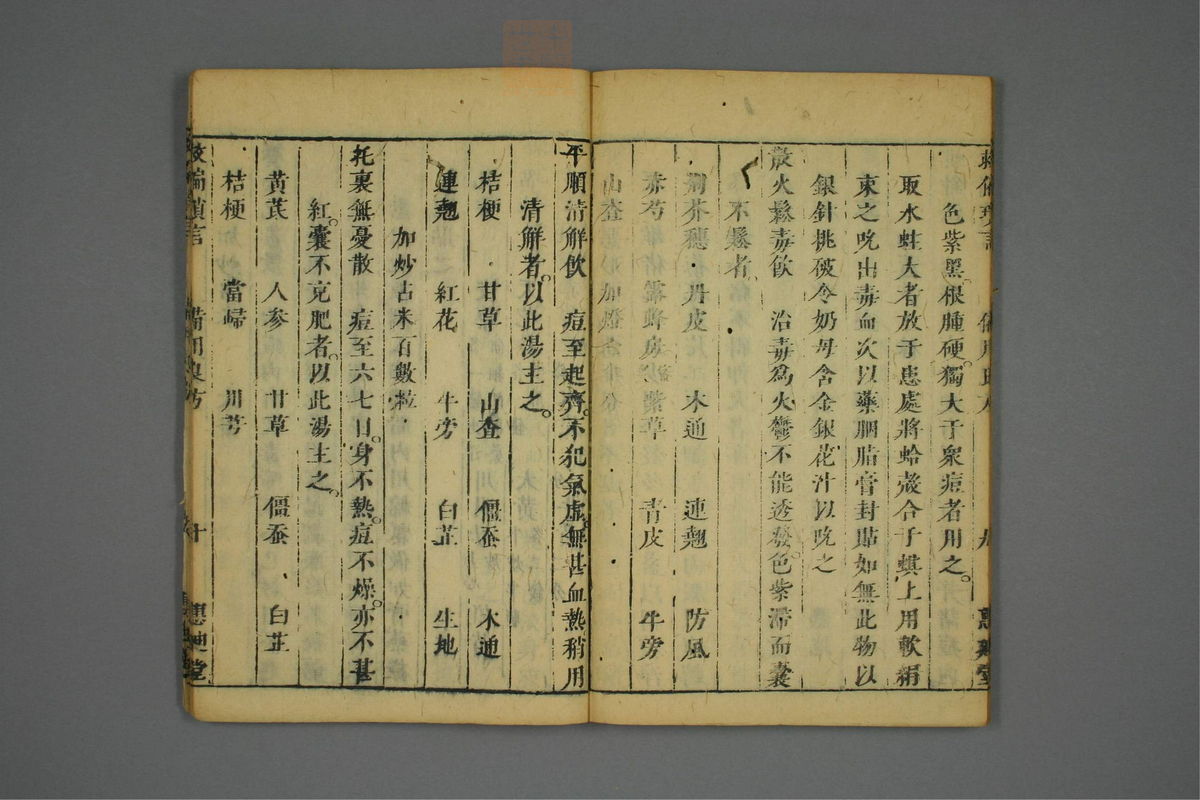 色紫黑根腫硬獨大于衆痘者用之
取水蛭大者放于患處將蛤殼合于蜞上用軟絹
束之吮出毒血次以藥胭脂膏封貼如無此物以
銀針挑破令奶母含金銀花汁以吮之
散火鬆毒飲 治毒為火鬱不能透發色紫滯而囊
不鬆者
荆芥穗 丹皮 木通 連翹 防風
赤芍 蜂房 紫草 青皮 牛旁
山查
平順清解飲 痘至起齊不犯氣虛無甚血熱稍用
清解者以此湯主之
桔梗 甘草 山查 僵蚕 木通
連翹 紅花 牛旁 白芷 生地
加炒古米百數粒
托裏無憂散 痘至六七日身不熱痘不燥亦不甚
紅囊不克肥者以此湯主之
黃芪 人參 甘草 僵蚕 白芷
桔梗 當歸 川芎
備用良方 十